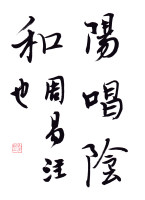 陽唱陰
和也
周易注